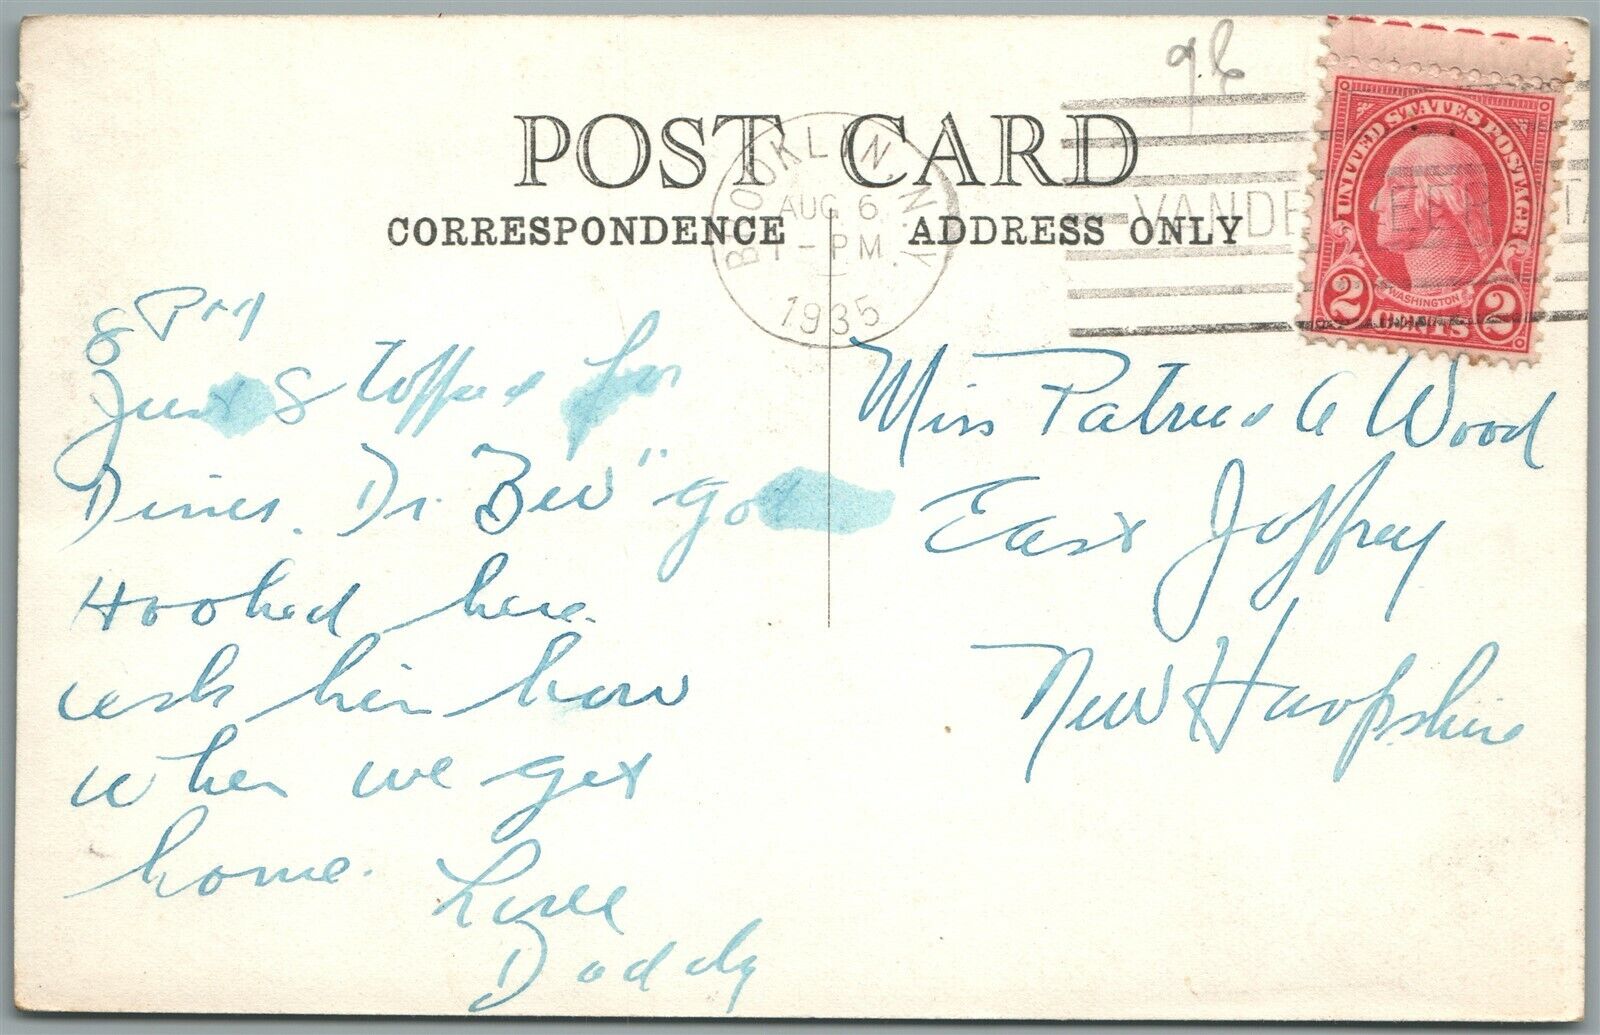 g.b
POST CARD
CORRESPONDENCE
ADDRESS ONLY
BROOKLYN, N.Y.
AUG 6
1-PM
1935
VANDE
UNITED STATES POSTAGE
WASHINGTON
2 CENTS 2
8 PM
Just Stopped for
Diner. Dr. Bew" got
Hooked here.
ask him how
when we get
home.
Love
Daddy
Miss Patricia Wood
East Jaffrey
New Hampshire